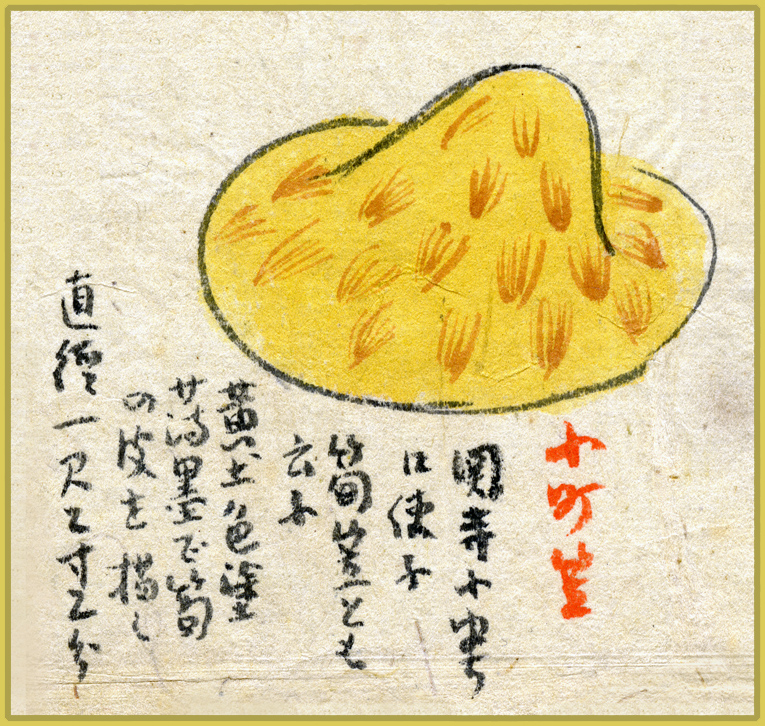 小町笠
関寺小町
に使ふ
筍笠とも
云ふ
黄土色塗
薄墨で筍
の皮を描く
直径一尺二寸五分